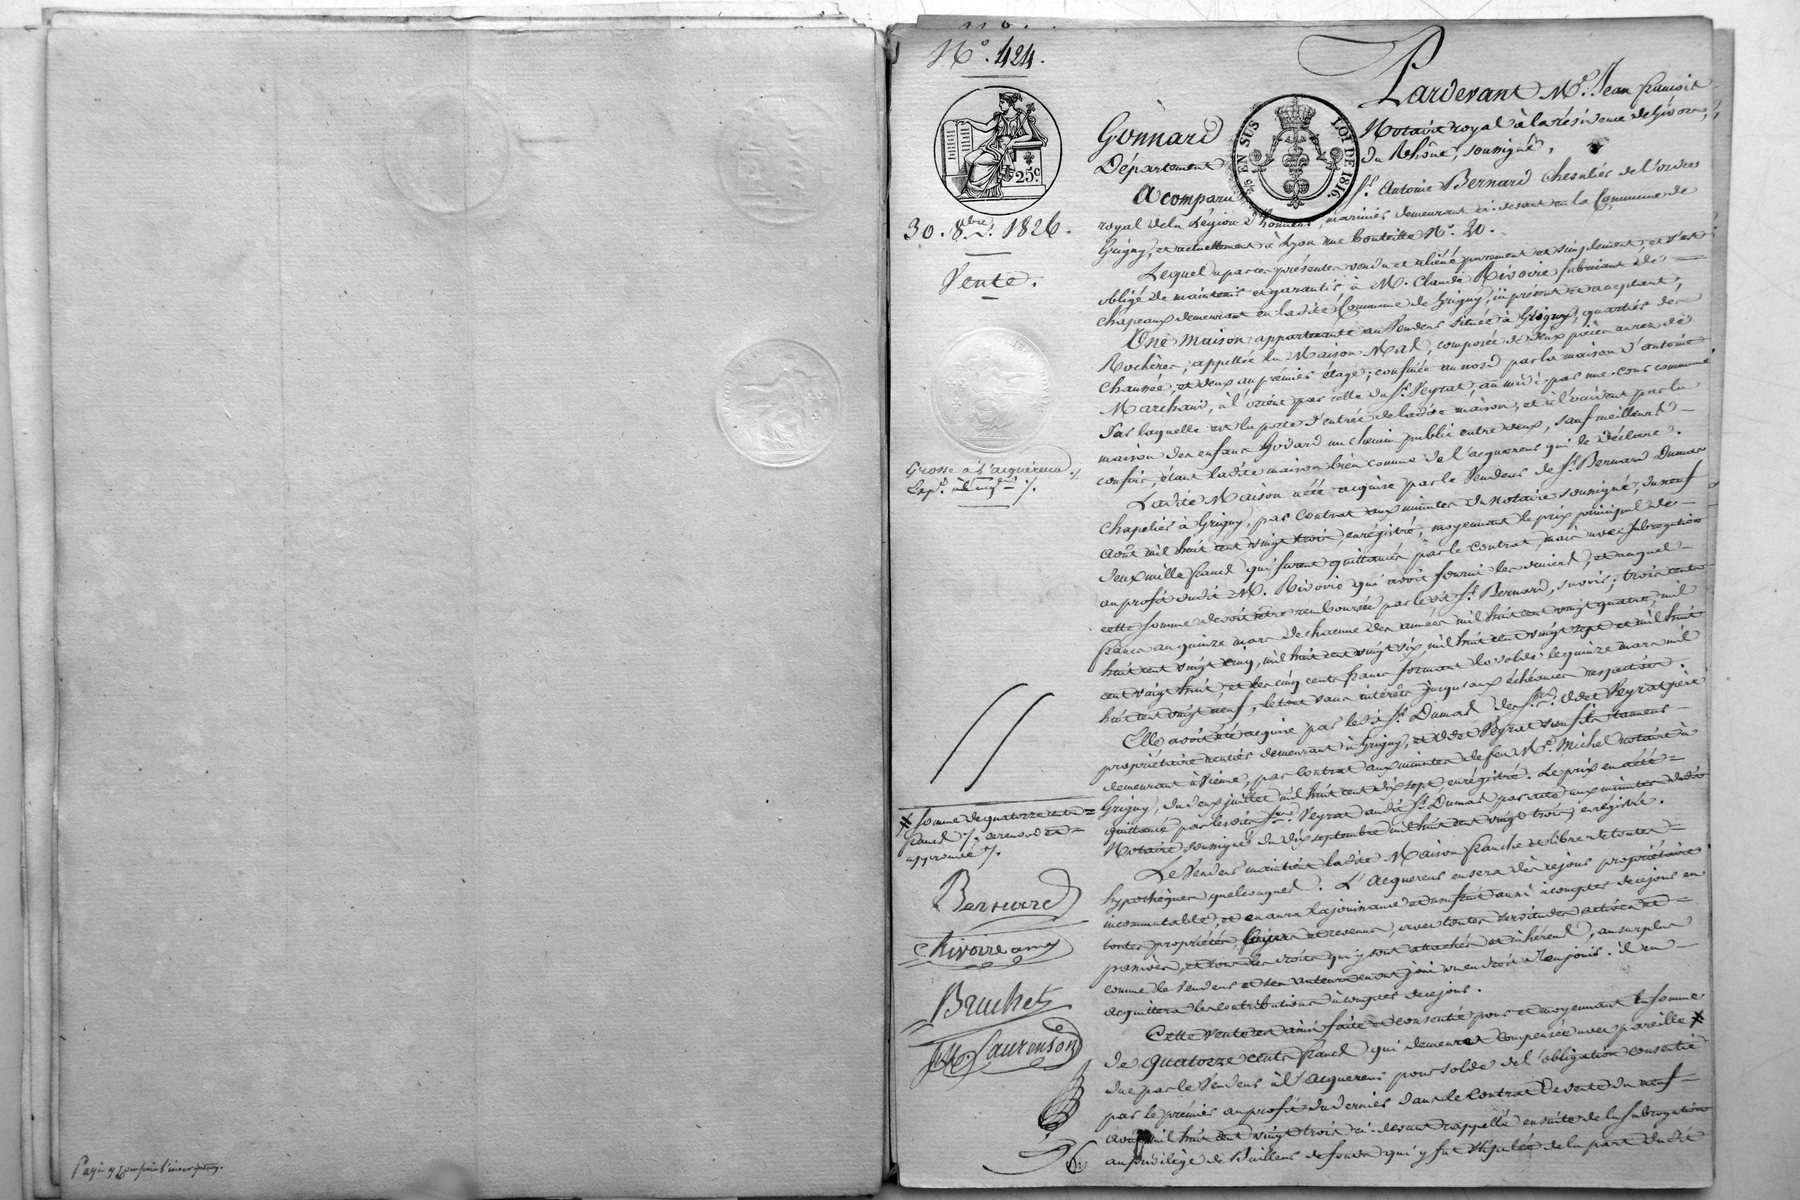 N.º 424.
25 c
30. 8.bre 1826.
Vente.
EN SUS
LOI DE 1816
Pardevant M.e Jean françois
Gonnard Notaire royal à la résidence de Givors,
Département du Rhône, soussigné,
A comparu S.r Antoine Bernard Chevalier de l'ordre
royal de la Légion d'honneur, demeurant ci-devant en la Commune de
Grigny, et actuellement à Lyon rue Bouteille N.º 20.
Lequel a par ces présentes vendu et aliéné purement et simplement, et s'est
obligé de maintenir et garantir à M. Claude Rivoire fabricant de
chapeaux demeurant en ladite Commune de Grigny, ici présent et acceptant,
Une Maison appartenante au Vendeur située à Grigny, quartier des
Rochères, appellée la Maison Mal, composée de deux pièces au rez de
chaussée, et deux au premier étage; confinée au nord par la maison d'antoine
Marchand, à l'orient par celle du S.r Veyrat, au midi par une cour commune
Par laquelle est la porte d'entrée de ladite maison, et à l'occident par la
maison des enfans Godard un chemin public entre deux, sauf meilleurs
confins, étant ladite maison bien connue de l'acquereur qui le déclare.
Ladite Maison a été acquise par le Vendeur de S.r Bernard Dumas
chapelier à Grigny, par contrat aux minutes du notaire soussigné, du neuf
août mil huit cent vingt trois, enregistré, moyennant le prix principal de
deux mille francs qui furent quittancés par le contrat, mais avec subrogation
au profit dudit M. Rivoire qui avoit fourni les deniers, et auquel
cette somme devoit être remboursée par ledit S.r Bernard, savoir; trois cents
francs au quinze mars de chacune des années mil huit cent vingt quatre, mil
huit cent vingt cinq, mil huit cent vingt six, mil huit cent vingt sept et mil huit
cent vingt huit, et les cinq cents francs formant le solde le quinze mars mil
huit cent vingt neuf, le tout sans intérêts jusqu'aux échéances respectives.
Elle avoit été acquise par ledit S.r Dumas des S.rs Odet Veyrat père
propriétaire rentier demeurant à Grigny, et Odet Veyrat son fils tanneur
demeurant à Vienne, par contrat aux minutes de feu M.e Michel notaire à
Grigny, du deux juillet mil huit cent dix sept, enregistré. Le prix en a été
quittancé par lesdits S.rs Veyrat audit S.r Dumas par acte aux minutes dudit
Notaire soussigné du dix septembre mil huit cent vingt trois, enregistré.
Le Vendeur maintient ladite Maison franche et libre de toutes
hypothèques quelconques. L'acquereur en sera dès ce jour propriétaire
incommutable, et en aura la jouissance et usufruit aussi à compter de ce jour en
toutes propriétés, loyers et revenus, avec toutes servitudes actives et
passives, et tous les droits qui y sont attachés et inhérens, au surplus
comme le Vendeur et ses auteurs en ont joui ou eu droit d'en jouir. il en
acquittera les contributions à compter de ce jour.
Cette vente est ainsi faite et consentie pour et moyennant la somme
de quatorze cents francs qui demeure compensée avec pareille ⌗
due par le Vendeur à l'acquereur pour solde de l'obligation consentie
par le premier au profit du dernier dans le contrat de vente du neuf
août mil huit cent vingt trois ci-devant rappellé ensuite de la subrogation
au privilège de Bailleur de fonds qui y fut stipulée de la part dudit
Grosse à l'acquéreur
⌗ somme de quatorze cents
francs ./. ce renvoi est
approuvé ./.
Bernard
Rivoire
Bruchet
Laurenson